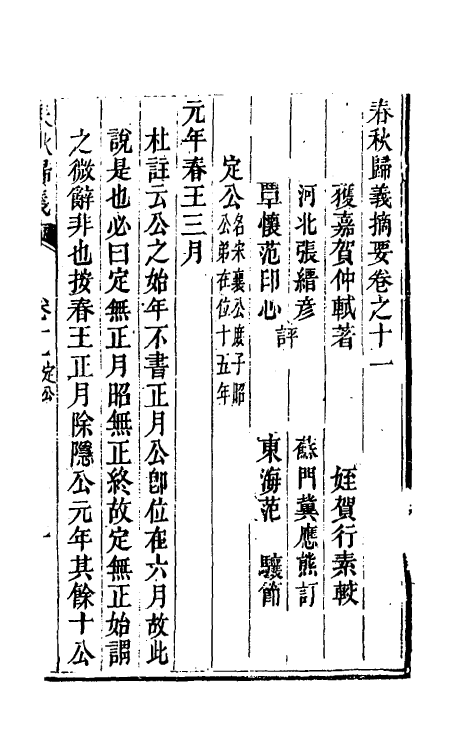 春秋歸義摘要卷之十一
獲嘉賀仲軾著　姪賀行素較
河北張縉彥　蘇門冀應熊訂
覃懷范印心　評　東海范　驤節
定公名宋襄公庶子昭
公弟在位十五年
元年春王三月
杜註云公之始年不書正月公卽位在六月故此
說是也必曰定無正月昭無正終故定無正始謂
之微辭非也按春王正月除隱公元年其餘十公
春秋歸義　卷十一定公　一